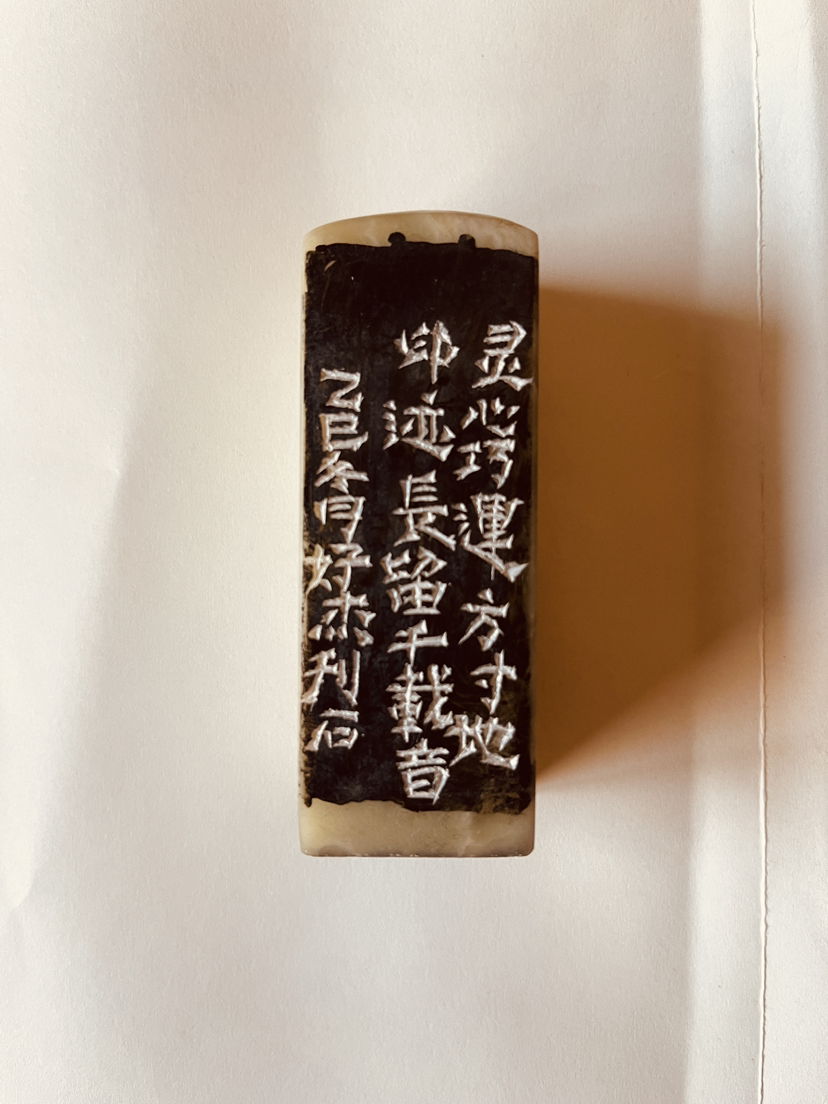 灵心巧運方寸地
印迹長留千載音
乙巳冬月好杰刊石